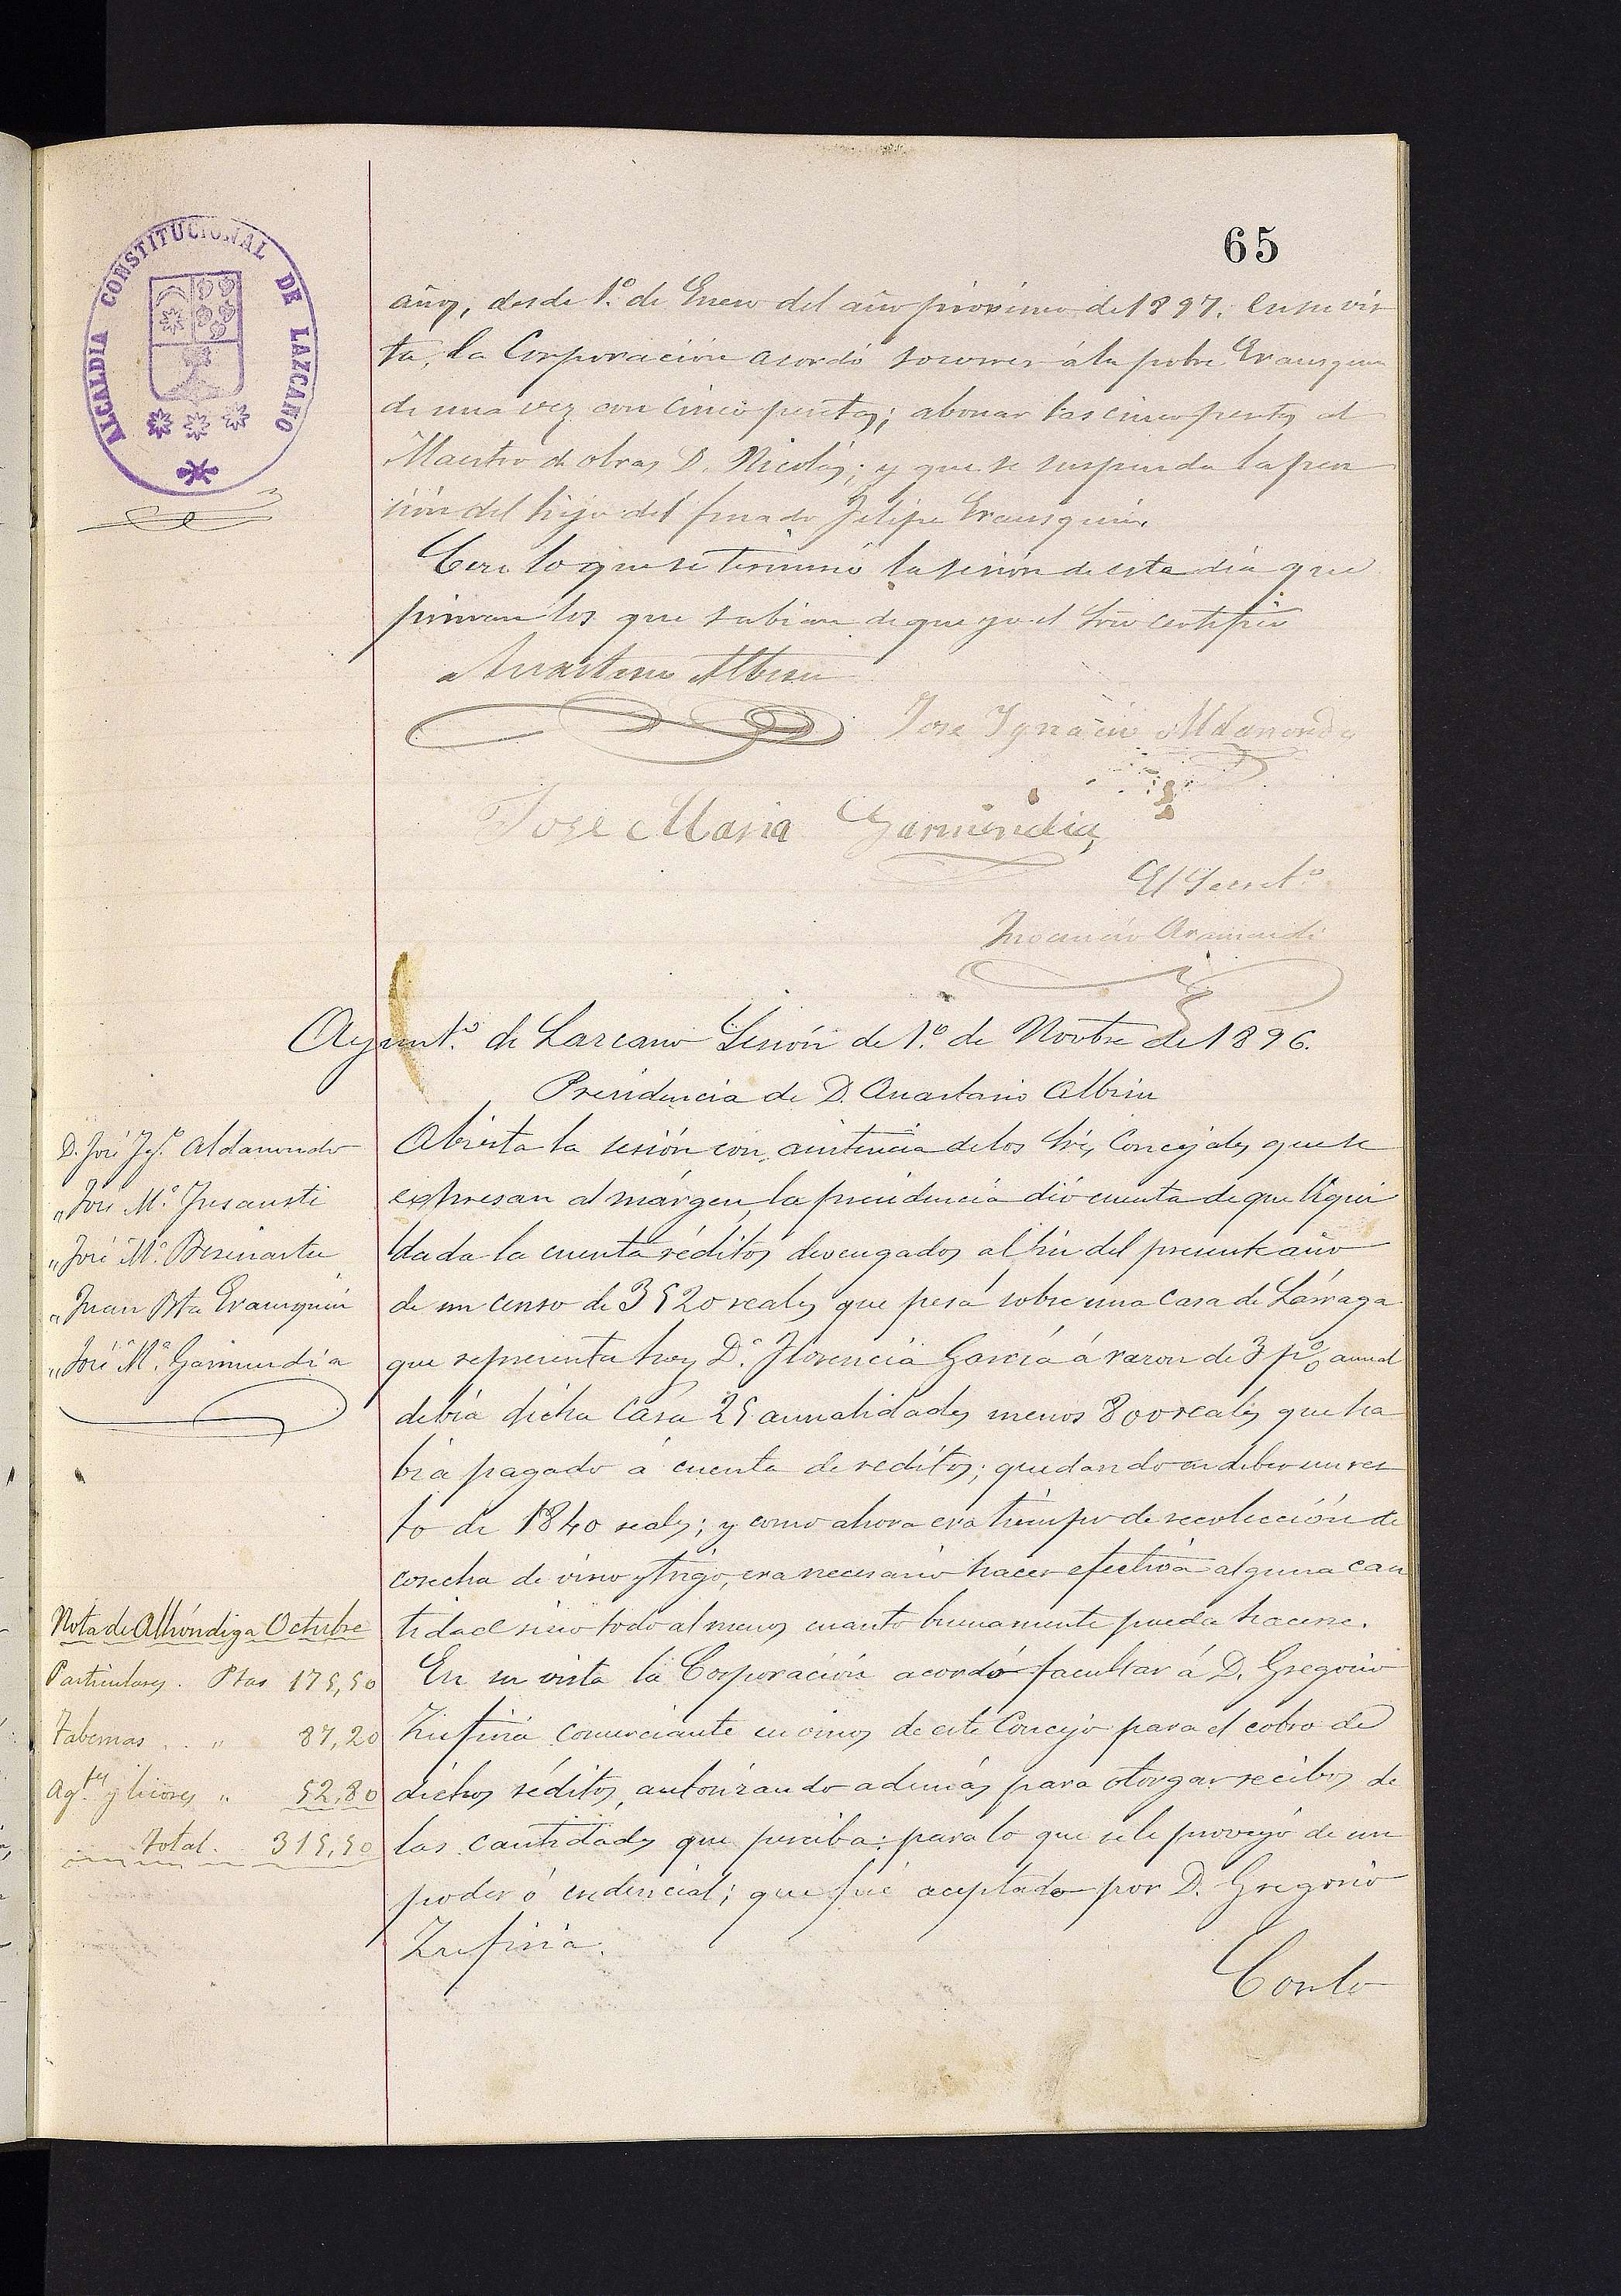 65
ALCALDIA CONSTITUCIONAL DE LAZCANO
años, desde 1.º de Enero del año próximo de 1897. En su vis
ta, la Corporación acordó socorrer á la pobre Erausquin
de una vez con cinco pesetas; abonar las cinco pesetas al
Maestro de obras D. Nicolás; y que se suspenda la pen
sión del hijo del finado Felipe Erausquin.
Con lo que se terminó la sesión de este dia que
firman los que sabian de que yo el Srio certifico
Anastasio Albisu
Jose Ignacio Aldanondo
Jose Maria Garmendia
El Secret.º
Inocencio Arimendi
Ayunt.º de Lazcano Sesión de 1.º de Novbre de 1896.
Presidencia de D. Anastasio Albisu
D. José Ig.º Aldanondo
" José M.ª Insausti
" José M.ª Beseinartu
" Juan Bta Erausquin
" José M.ª Garmendia
Abierta la sesión con asistencia de los Srs. Concejales que se
expresan al márgen, la presidencia dió cuenta de que liqui
dada la cuenta réditos devengados al fin del presente año
de un censo de 3520 reales que pesa sobre una casa de Lárraga
que representa hoy D.ª Florencia García á razon de 3 p% anual
debia dicha casa 25 anualidades menos 800 reales que ha
bia pagado á cuenta de reditos; quedando en deber un res
to de 1840 reales; y como ahora era tiempo de recolección de
cosecha de vino y trigo, era necesario hacer efectiva alguna can
tidad sino todo al menos cuanto buenamente pueda hacerse.
En su vista la Corporación acordó facultar á D. Gregorio
Zufiria comerciante en vinos de este Concejo para el cobro de
dichos réditos, autorizando además para otorgar recibos de
las cantidades que perciba: para lo que se le proveyó de un
poder ó credencial; que fué aceptado por D. Gregorio
Zufiria.
Nota de Alhóndiga Octubre
Particulares. Ptas 175,50
Tabernas . . " 87,20
Ag.tes y licores " 52,80
Total. 315,50
Con lo